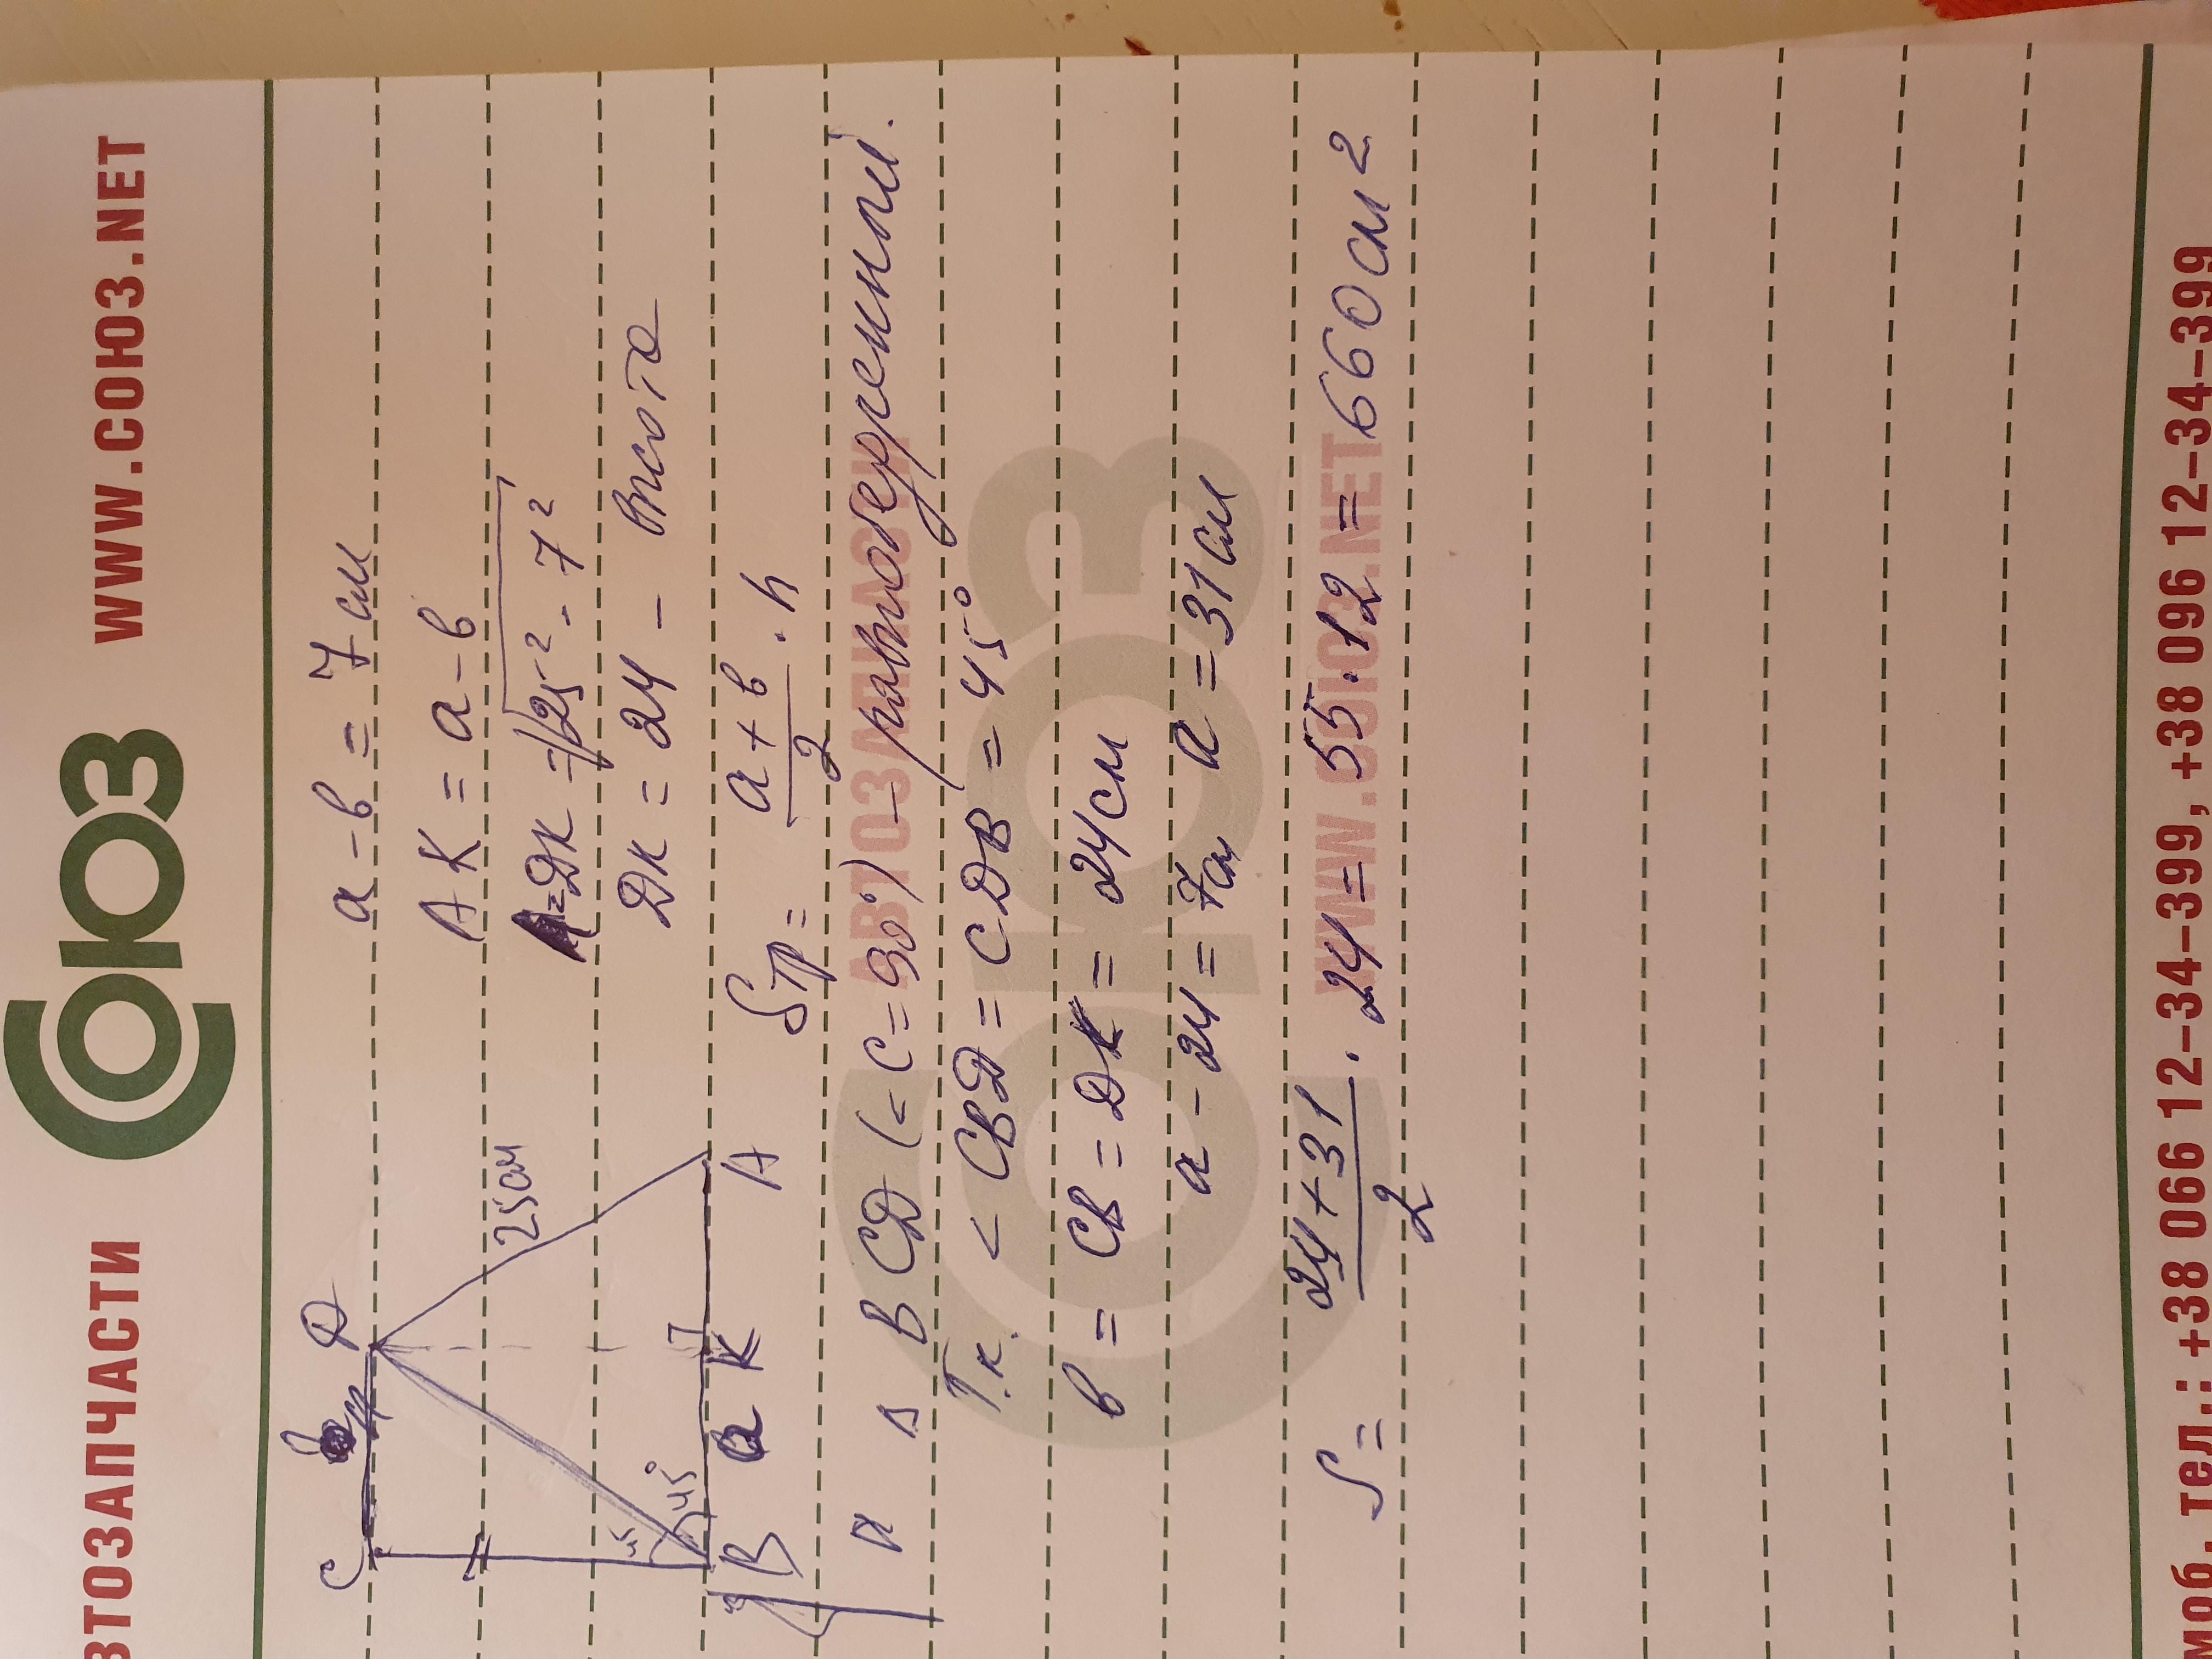 ВТОЗАПЧАСТИ СОЮЗ WWW.СОЮЗ.NET
C b D
25см
45 45°
B a K A
a - b = 7 см
AK = a - b
ДК = √25² - 7²
ДК = 24 - высота
Sтр = a + b / 2 · h
△ BCD (∠C = 90°) - равнобедренный.
Т.к. < CBD = CDB = 45°
b = CB = DK = 24см
a - 24 = 7см a = 31см
S = 24 + 31 / 2 · 24 = 55 · 12 = 660 см2
СОЮЗ
АВТОЗАПЧАСТИ
WWW.СОЮЗ.NET
моб. тел.: +38 066 12-34-399, +38 096 12-34-399